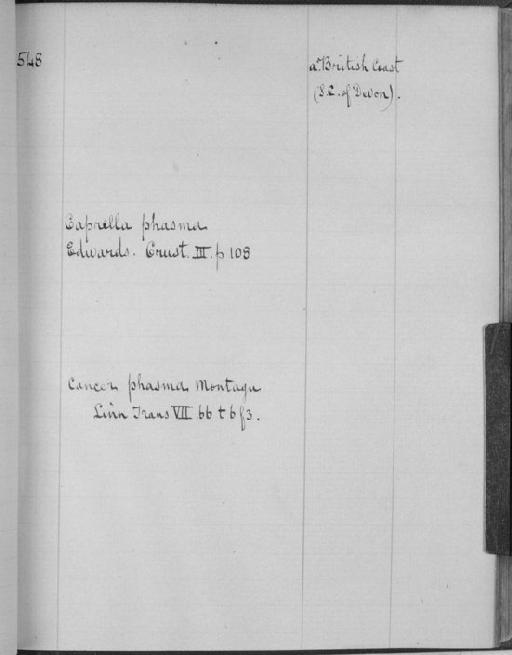 548
a. British Coast
(S.C. of Devon).
Caprella phasma
Edwards. Crust. III. p 108
Cancer phasma Montagu
Linn Trans VII 66 t 6 f 3.